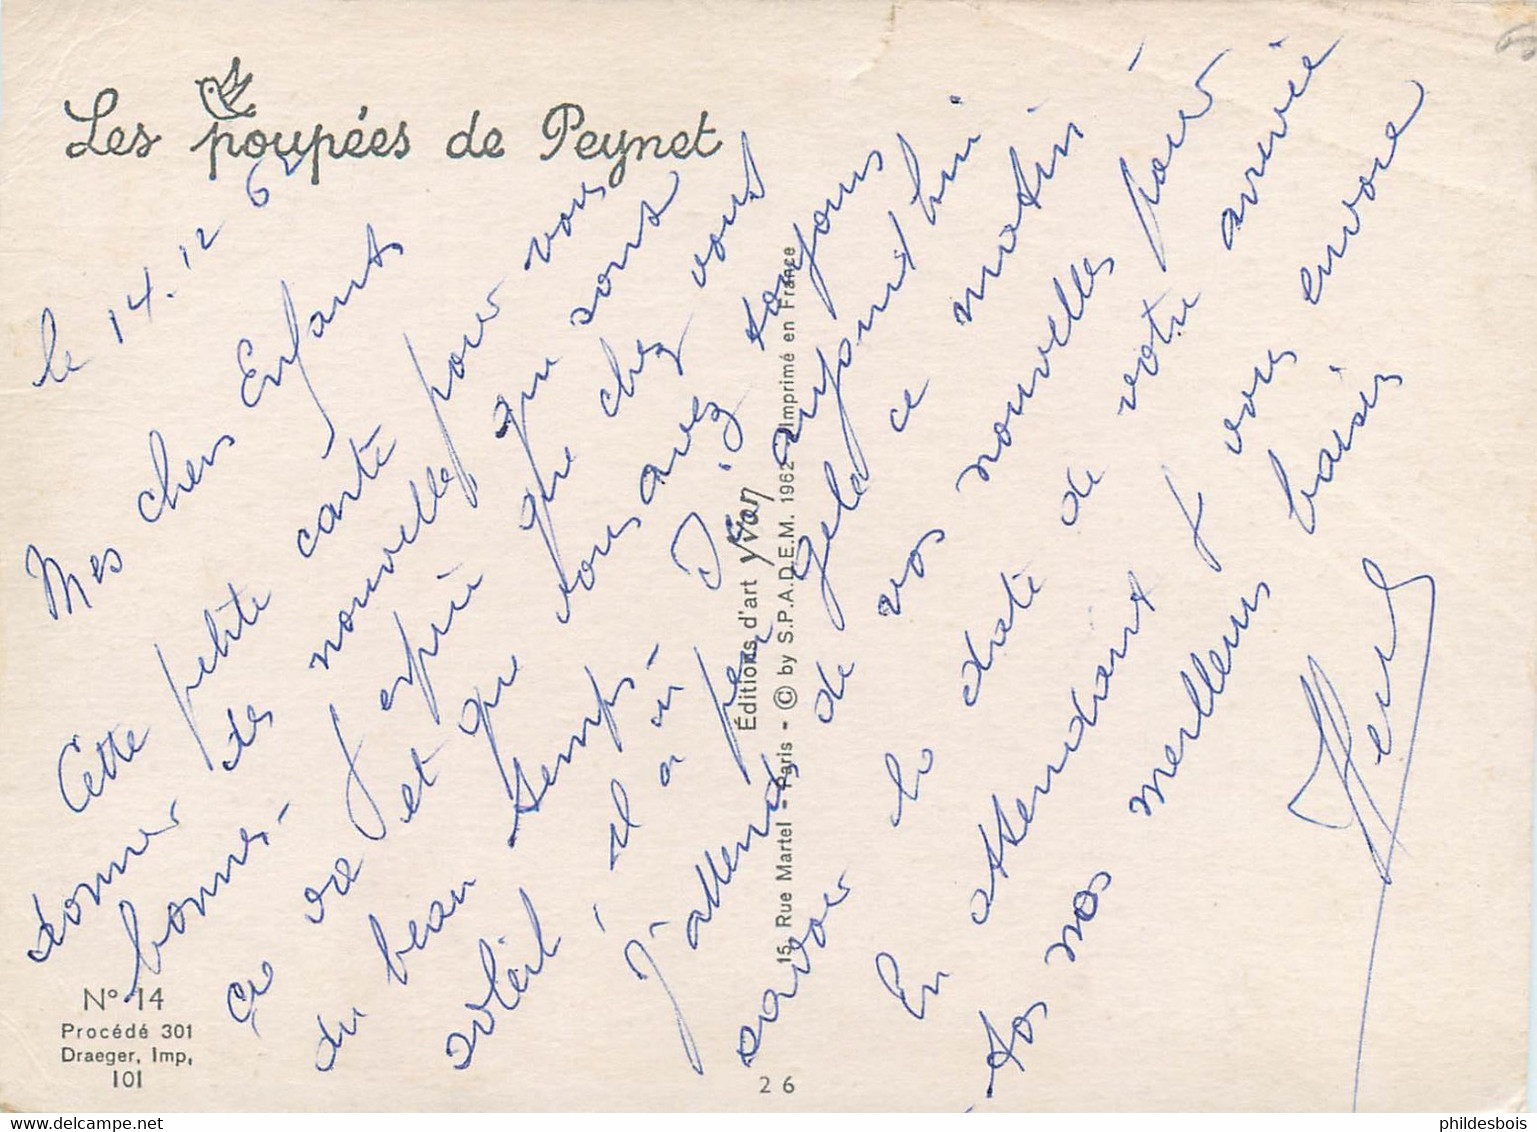 Les poupées de Peynet
le 14.12 6
Mes chers Enfants
Cette petite carte pour vous
donner des nouvelles que sont
bonnes - j'espère que chez vous
ça va et que vous avez toujours
du beau temps - Ici aujourd'hui
soleil il a un peu gelé ce matin
J'attends de vos nouvelles pour
savoir la date de votre arrivée
En attendant je vous envoie
tos nos meilleurs baisers
Éditions d'art Yvan
15, Rue Martel - Paris - © by S.P.A.D.E.M. 1962 - Imprimé en France
N° 14
Procédé 301
Draeger, Imp,
101
26
phildesbois